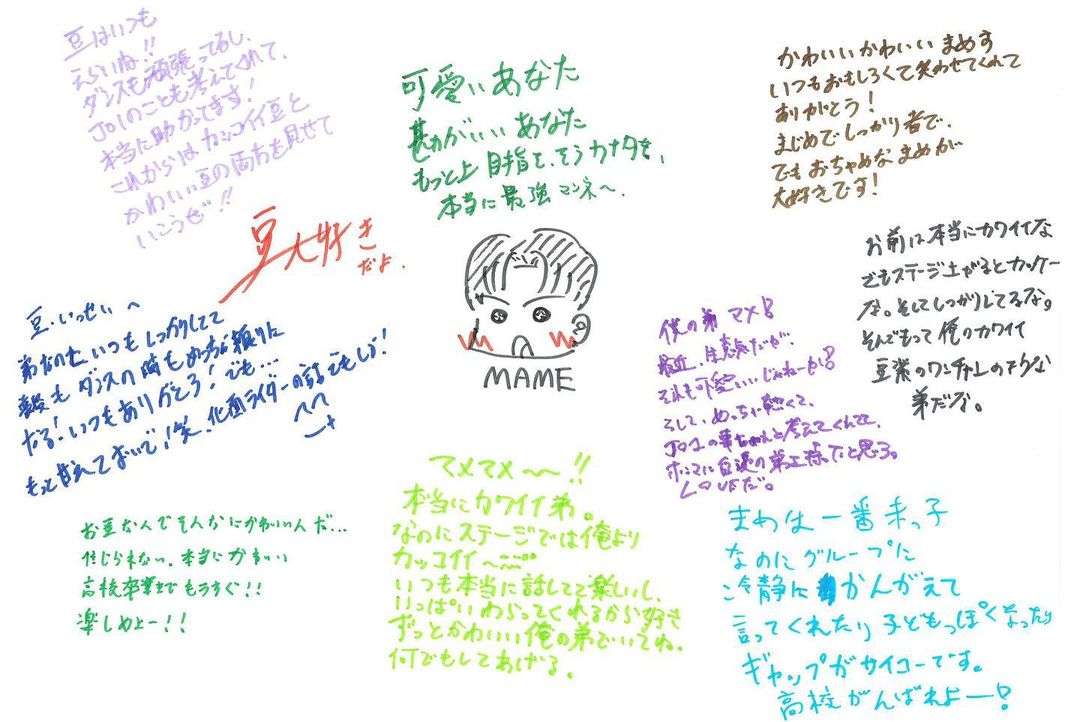 豆はいつも
えらいね!!
ダンスも頑張ってるし、
JO1のことも考えてくれて、
本当に助かってます!
これからはカッコイイ豆と
かわいい豆の両方を見せて
いこうぜ!!
可愛いあなた
勘がいいあなた
もっと上目指を、そうカナタを、
本当に最強マンネ〜、
かわいいかわいいまめす
いつもおもしろくて笑わせてくれて
ありがとう!
まじめでしっかり者で、
でもおちゃめなまめが
大好きです!
豆大好き
だよ.
お前は本当にカワイイな
でもステージ上がるとカッケー
な。そしてしっかりしてるな。
そんでもって俺のカワイイ
豆柴のワンチャンのような
弟だな。
豆.いっせい へ
弟なのに いつもしっかりしてて
ダンスの時もめっちゃ頼りに
なる!いつもありがとう!でも…
もっと甘えておいで!笑、仮面ライダーの話でもしよ!
MAME
僕の弟 マメ!
最近、生意気だが、
それも可愛い…じゃねーか!
そして、めっちゃ賢くて、
JO1の事ちゃんと考えてくれてて、
ホンマに自慢の弟
LOVEだ。
マメマメ〜〜!!
本当にカワイイ弟。
なのにステージでは俺より
カッコイイ〜
いつも本当に話してて楽しいし、
いっぱいわらってくれるから好き
ずっとかわいい俺の弟でいてね。
何でもしてあげる。
お豆なんでそんなにかわいいんだ...
信じられない。本当にかわいい
高校卒業までもうすぐ!!
楽しめよー!!
まめは一番末っ子
なのにグループに
冷静にかんがえて
言ってくれたり子どもっぽくなったり
ギャップがサイコーです。
高校がんばれよー!